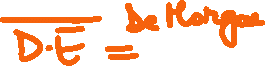 D·E = De Morgan